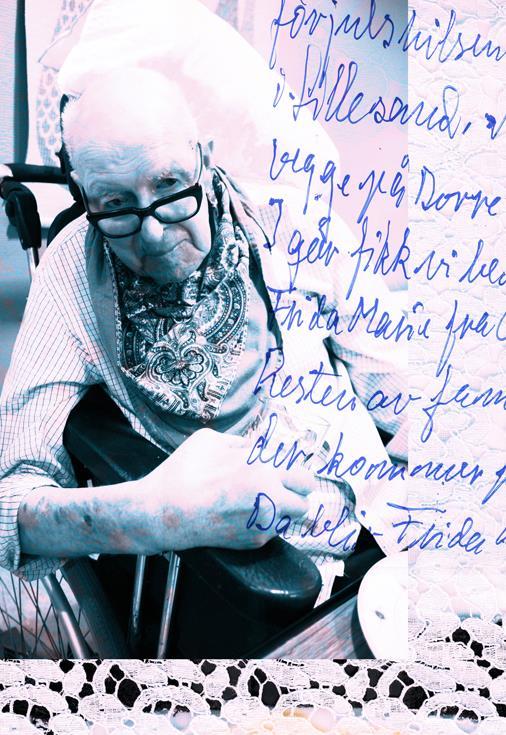 førjulshilsen
i Lillesand,
begge på Dovre
I går fikk vi
Frida Marie fra
Resten av fam
der kommer
Da blir Frida